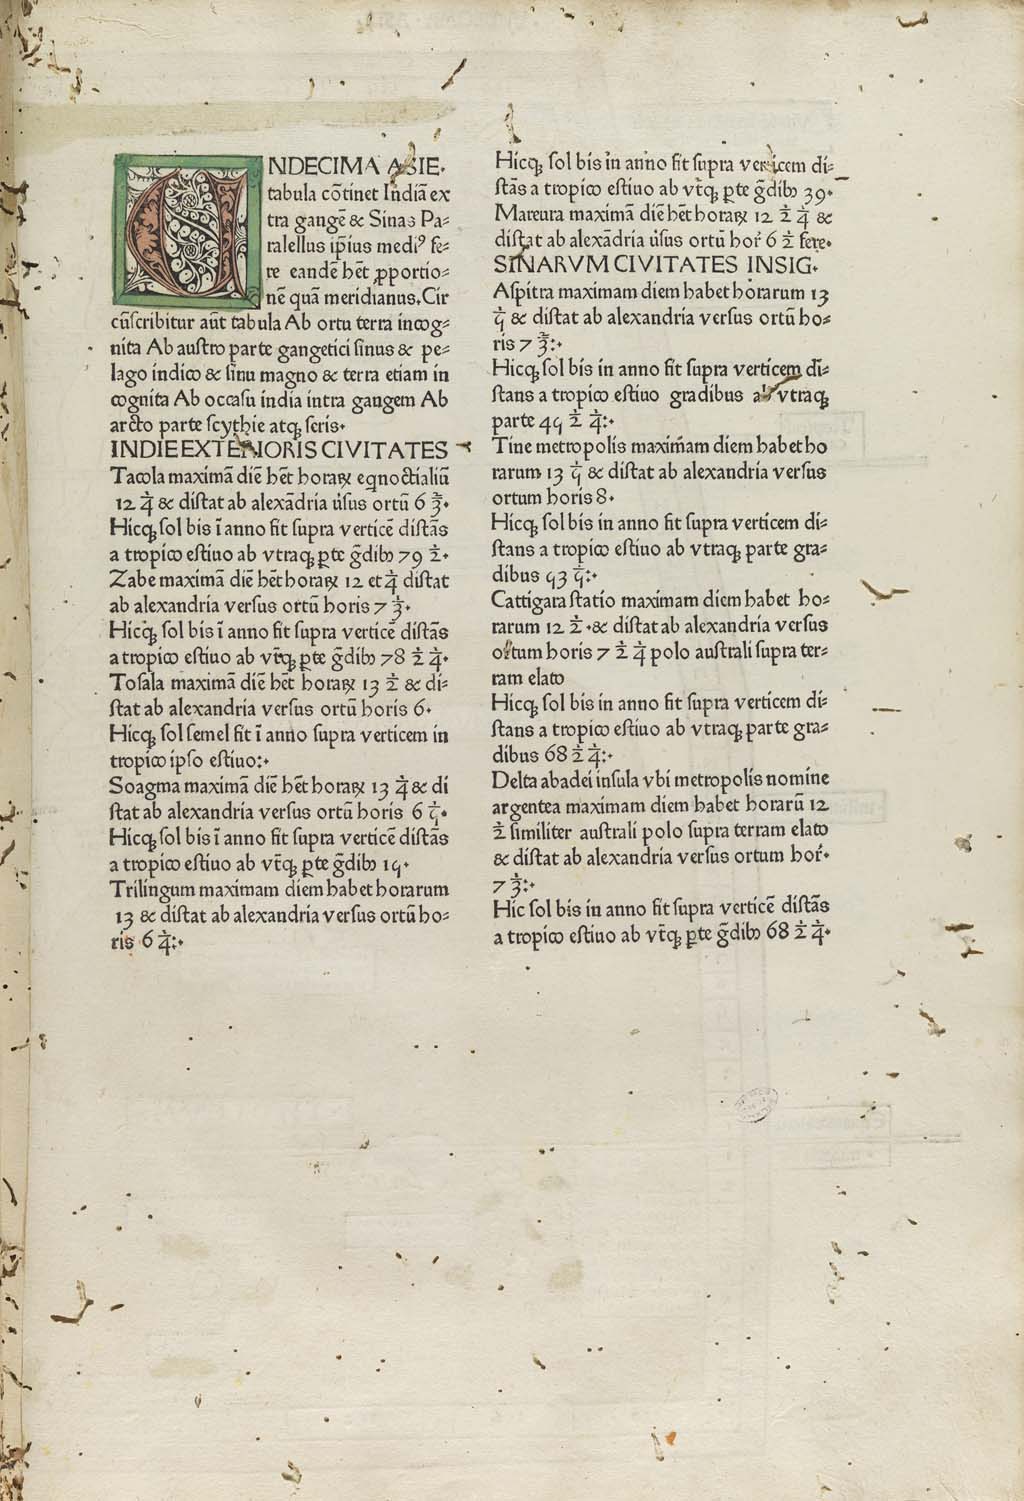 UNDECIMA ASIE.
tabula cōtinet Indiā ex
tra gangē & Sinas Pa-
ralellus ip̄ius mediꝰ fe-
re eandē hēt ꝓportio-
nē quā meridianus. Cir
cūscribitur aūt tabula Ab ortu terra incog-
nita Ab austro parte gangetici sinus & pe-
lago indico & sinu magno & terra etiam in
cognita Ab occasu india intra gangem Ab
arcto parte scythie atqꝫ seris.
INDIE EXTERIORIS CIVITATES
Tacola maximā diē hēt horaꝝ eqnoctialiū
12 1/4 & distat ab alexādria ūsus ortū 6 2/3.
Hicqꝫ sol bis ī anno fit supra verticē distās
a tropico estiuo ab vtraqꝫ ꝑte ḡdibꝫ 79 1/2.
Zabe maximā diē hēt horaꝝ 12 et 1/4 distat
ab alexandria versus ortū horis 7 1/3.
Hicqꝫ sol bis ī anno fit supra verticē distās
a tropico estiuo ab vt̄qꝫ ꝑte ḡdibꝫ 78 1/2 1/4.
Tosala maximā diē hēt horaꝝ 13 1/2 & di-
stat ab alexandria versus ortū horis 6.
Hicqꝫ sol semel fit ī anno supra verticem in
tropico ipso estiuo:.
Soagma maximā diē hēt horaꝝ 13 1/4 & di
stat ab alexandria versus ortū horis 6 1/5.
Hicqꝫ sol bis ī anno fit supra verticē distās
a tropico estiuo ab vt̄qꝫ ꝑte ḡdibꝫ 15.
Trilingum maximam diem habet horarum
13 & distat ab alexandria versus ortū ho-
ris 6 1/4:.
Hicqꝫ sol bis in anno fit supra verticem di-
stās a tropico estiuo ab vt̄qꝫ ꝑte ḡdibꝫ 39.
Mareura maximā diē hēt horaꝝ 12 1/2 1/4 &
distat ab alexādria ūsus ortū hor 6 1/2 fere.
SINARVM CIVITATES INSIG.
Aspitra maximam diem habet horarum 13
1/5 & distat ab alexandria versus ortū ho-
ris 7 2/3:.
Hicqꝫ sol bis in anno fit supra verticem di-
stans a tropico estiuo gradibus ab vtraqꝫ
parte 45 1/2 1/4:.
Tine metropolis maximam diem habet ho
rarum 13 1/5 & distat ab alexandria versus
ortum horis 8.
Hicqꝫ sol bis in anno fit supra verticem di-
stans a tropico estiuo ab vtraqꝫ parte gra-
dibus 53 1/5:.
Cattigara statio maximam diem habet ho-
rarum 12 1/2 .& distat ab alexandria versus
ortum horis 7 1/2 1/4 polo australi supra ter-
ram elato
Hicqꝫ sol bis in anno fit supra verticem di-
stans a tropico estiuo ab vtraqꝫ parte gra-
dibus 68 1/2 1/4:.
Delta abadei insula vbi metropolis nomine
argentea maximam diem habet horarū 12
1/2 similiter australi polo supra terram elato
& distat ab alexandria versus ortum hor.
7 1/3:.
Hic sol bis in anno fit supra verticē distās
a tropico estiuo ab vt̄qꝫ ꝑte ḡdibꝫ 68 1/2 1/4.